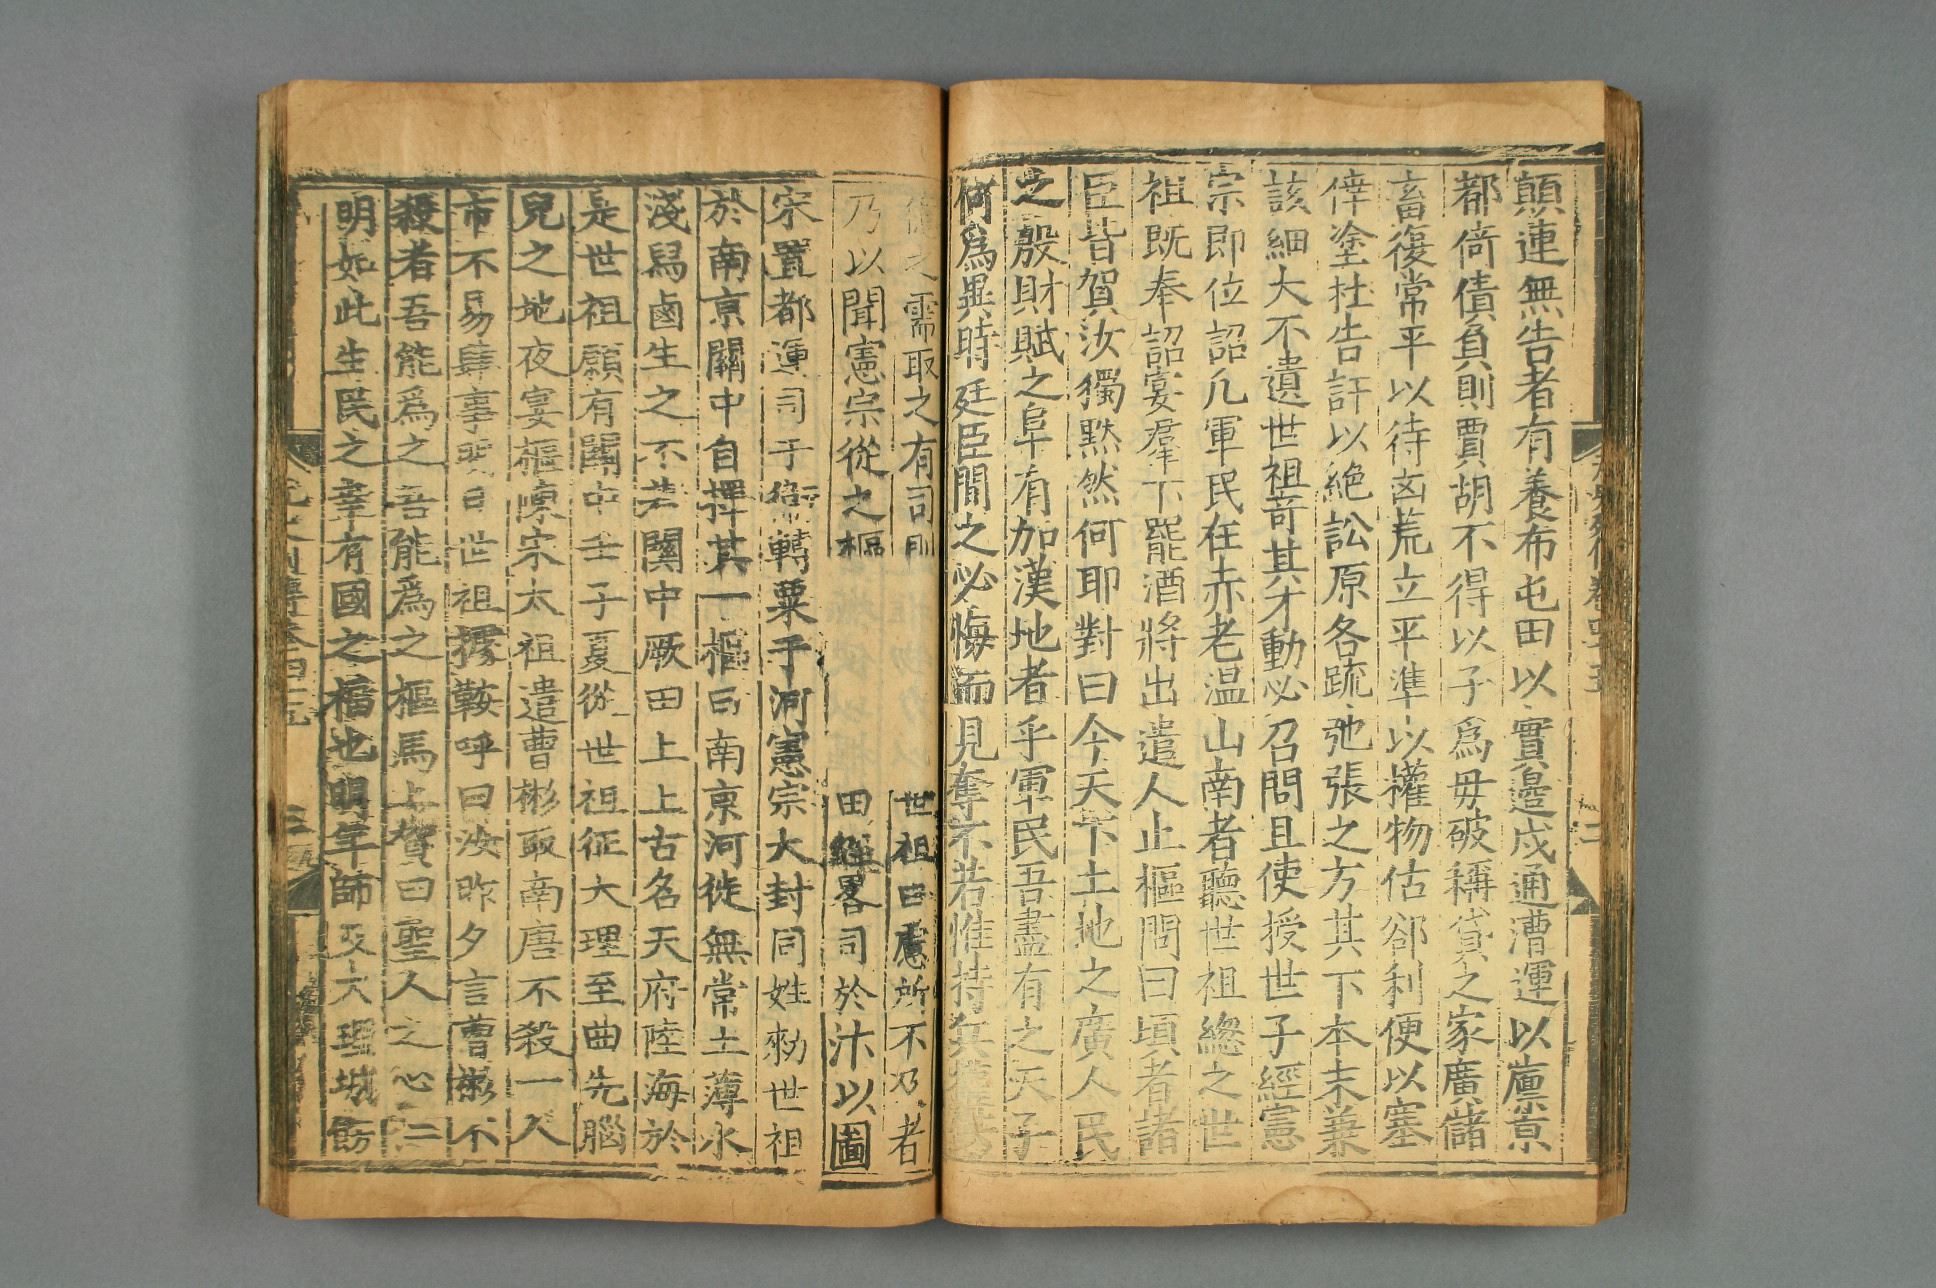 顛連無告者有養布屯田以實邊戍通漕運以廩京
都倚債負則賈胡不得以子爲母破稱貸之家廣儲
畜復常平以待凶荒立平準以權物估郤利便以塞
倖塗杜告訐以絶訟原各䟽弛張之方其下本末兼
該細大不遺世祖竒其才動必召問且使授世子經憲
宗即位詔凡軍民在赤老温山南者聽世祖緫之世
祖既奉詔宴羣下罷酒將出遣人止樞問曰頃者諸
臣皆賀汝獨黙然何耶對曰今天下土地之廣人民
之殷財賦之阜有加漢地者乎軍民吾盡有之天子
何爲異時廷臣間之必悔而見奪不若惟持兵權
之需取之有司則 世祖曰慮所不及者
乃以聞憲宗從之樞 田經畧司於汴以圖
宋置都運司于衛轉粟于河憲宗大封同姓勑世祖
於南京關中自擇其一樞曰南京河徙無常土薄水
淺舄鹵生之不若關中厥田上上古名天府陸海於
是世祖願有關中壬子夏從世祖征大理至曲先腦
兒之地夜宴樞陳宋太祖遣曹彬取南唐不殺一人
市不易肆事明日世祖據鞍呼曰汝昨夕言曹彬不
殺者吾能爲之吾能爲之樞馬上賀曰聖人之心仁
明如此生民之幸有國之福也明年師及大理城飭
元史列傳卷四十五